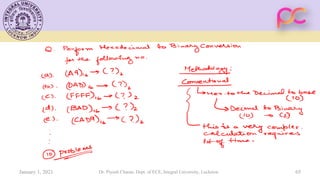 Q Perform Hexadecimal to Binary Conversion
for the following no.
(a). (A9)₁₆ → (?)₂
(b). (DAD)₁₆ → (?)₂
(c). (FFFF)₁₆ → (?)₂
(d). (BAD)₁₆ → (?)₂
(e). (CADA)₁₆ → (?)₂
10 problems
Methodology:
Conventional
to the Decimal to base
(10)
Decimal to Binary
(10) → (2)
this is a very complex.
Calculation requires
lot of time.
January 1, 2021
Dr. Piyush Charan, Dept. of ECE, Integral University, Lucknow
65